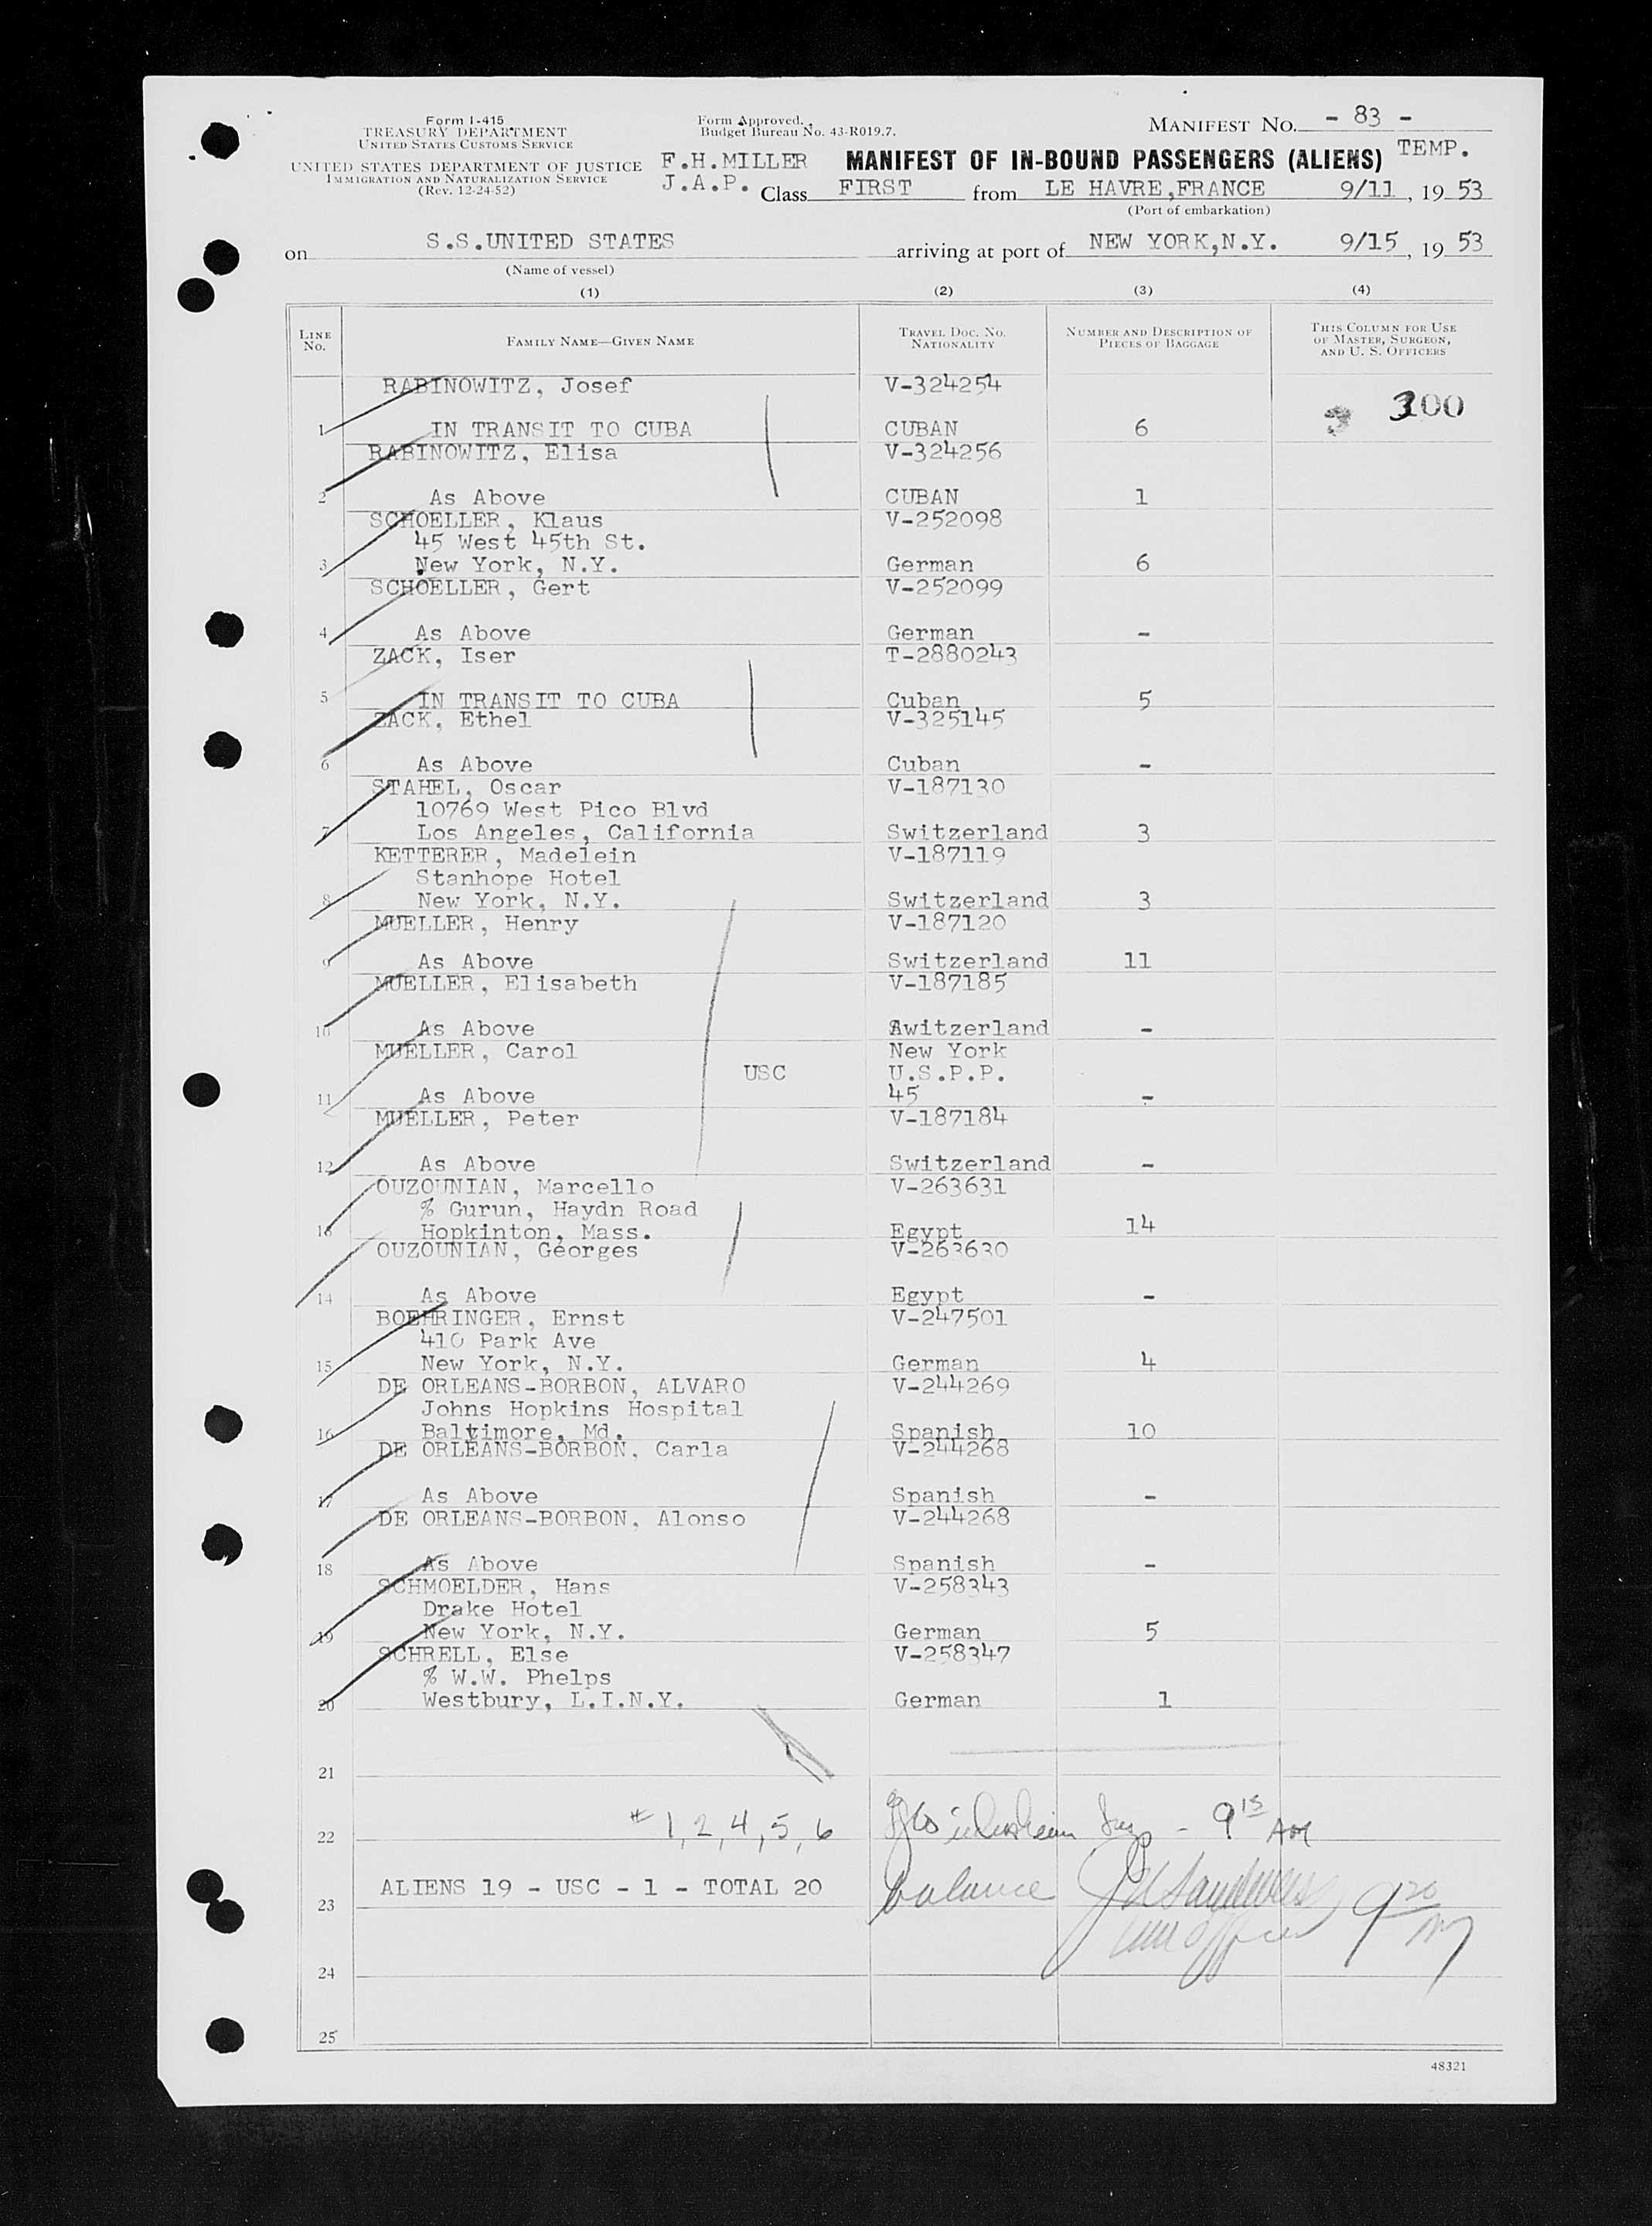 Form I-415
TREASURY DEPARTMENT
UNITED STATES CUSTOMS SERVICE
UNITED STATES DEPARTMENT OF JUSTICE
IMMIGRATION AND NATURALIZATION SERVICE
(Rev. 12-24-52)
Form Approved.
Budget Bureau No. 43-R019.7.
MANIFEST No. - 83 -
F.H.MILLER MANIFEST OF IN-BOUND PASSENGERS (ALIENS) TEMP.
J.A.P. Class FIRST from LE HAVRE,FRANCE 9/11, 19 53
(Port of embarkation)
on S.S.UNITED STATES arriving at port of NEW YORK,N.Y. 9/15, 19 53
(Name of vessel)
(1) (2) (3) (4)
LINE No. FAMILY NAME—GIVEN NAME TRAVEL DOC. NO. NATIONALITY NUMBER AND DESCRIPTION OF PIECES OF BAGGAGE THIS COLUMN FOR USE OF MASTER, SURGEON, AND U. S. OFFICERS
RABINOWITZ, Josef V-324254
300
1 IN TRANSIT TO CUBA CUBAN 6
RABINOWITZ, Elisa V-324256
2 As Above CUBAN 1
SCHOELLER, Klaus V-252098
45 West 45th St.
3 New York, N.Y. German 6
SCHOELLER, Gert V-252099
4 As Above German -
ZACK, Iser T-2880243
5 IN TRANSIT TO CUBA Cuban 5
ZACK, Ethel V-325145
6 As Above Cuban -
STAHEL, Oscar V-187130
10769 West Pico Blvd
7 Los Angeles, California Switzerland 3
KETTERER, Madelein V-187119
Stanhope Hotel
8 New York, N.Y. Switzerland 3
MUELLER, Henry V-187120
9 As Above Switzerland 11
MUELLER, Elisabeth V-187185
10 As Above Awitzerland -
MUELLER, Carol New York
USC U.S.P.P.
11 As Above 45 -
MUELLER, Peter V-187184
12 As Above Switzerland -
OUZOUNIAN, Marcello V-263631
% Gurun, Haydn Road
13 Hopkinton, Mass. Egypt 14
OUZOUNIAN, Georges V-263630
14 As Above Egypt -
BOEHRINGER, Ernst V-247501
410 Park Ave
15 New York, N.Y. German 4
DE ORLEANS-BORBON, ALVARO V-244269
Johns Hopkins Hospital
16 Baltimore, Md. Spanish 10
DE ORLEANS-BORBON, Carla V-244268
17 As Above Spanish -
DE ORLEANS-BORBON, Alonso V-244268
18 As Above Spanish -
SCHMOELDER, Hans V-258343
Drake Hotel
19 New York, N.Y. German 5
SCHRELL, Else V-258347
% W.W. Phelps
20 Westbury, L.I.N.Y. German 1
21
22 # 1, 2, 4, 5, 6 - 9 15 AM
23 ALIENS 19 - USC - 1 - TOTAL 20 balance 9 20
24
25
48321